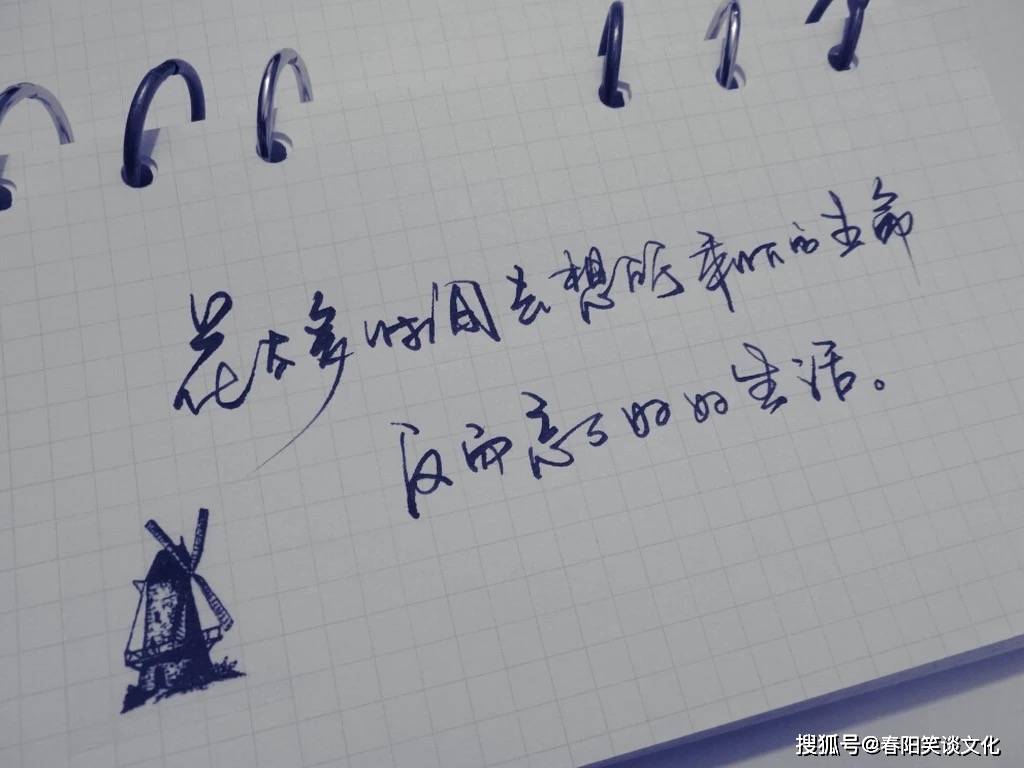 花太多时间去想所剩下的生命
反而忘了好好生活。
搜狐号@春阳笑谈文化